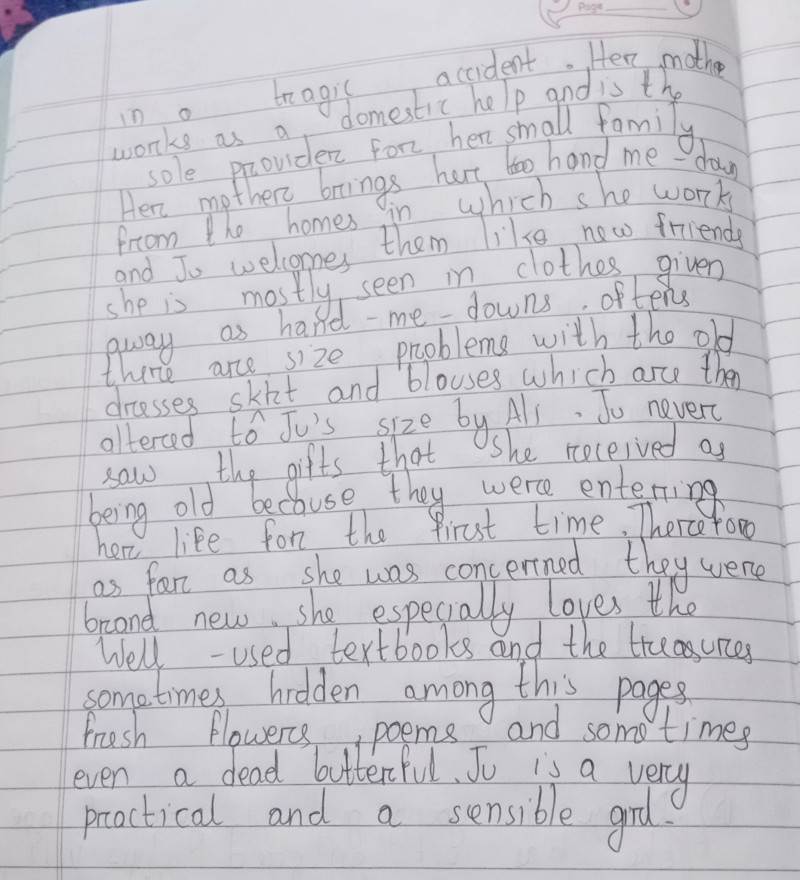 Page
in a tragic accident. Her mothe
works as a domestic help and is the
sole provider for her small family.
Her mother brings her hand me-down
from the homes in which she work
and Ju welcomes them like new friends
she is mostly seen in clothes given
away as hand-me-downs. oftens
there are size problems with the old
dresses skirt and blouses which are then
altered to Ju's size by Ali. Ju never
saw the gifts that she received as
being old because they were enterring
her life for the first time. Therefore
as far as she was concerned they were
brand new. she especially loves the
Well-used textbooks and the treasures
sometimes hidden among this pages
fresh flowers, poems and sometimes
even a dead butterful. Ju is a very
practical and a sensible girl.